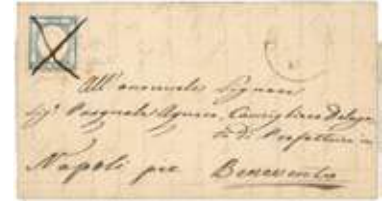 All' onorevole Signore
Sig.r Pasquale
Consigliere Delega
to di Prefettura in
Napoli per Benevento